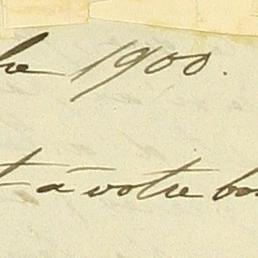 bre 1900.
t à votre bo